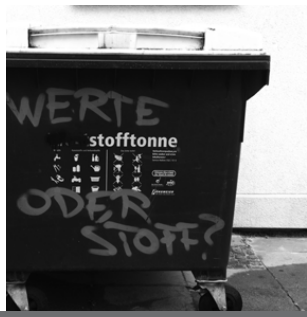 WERTE
stofftonne
ODER
STOFF?